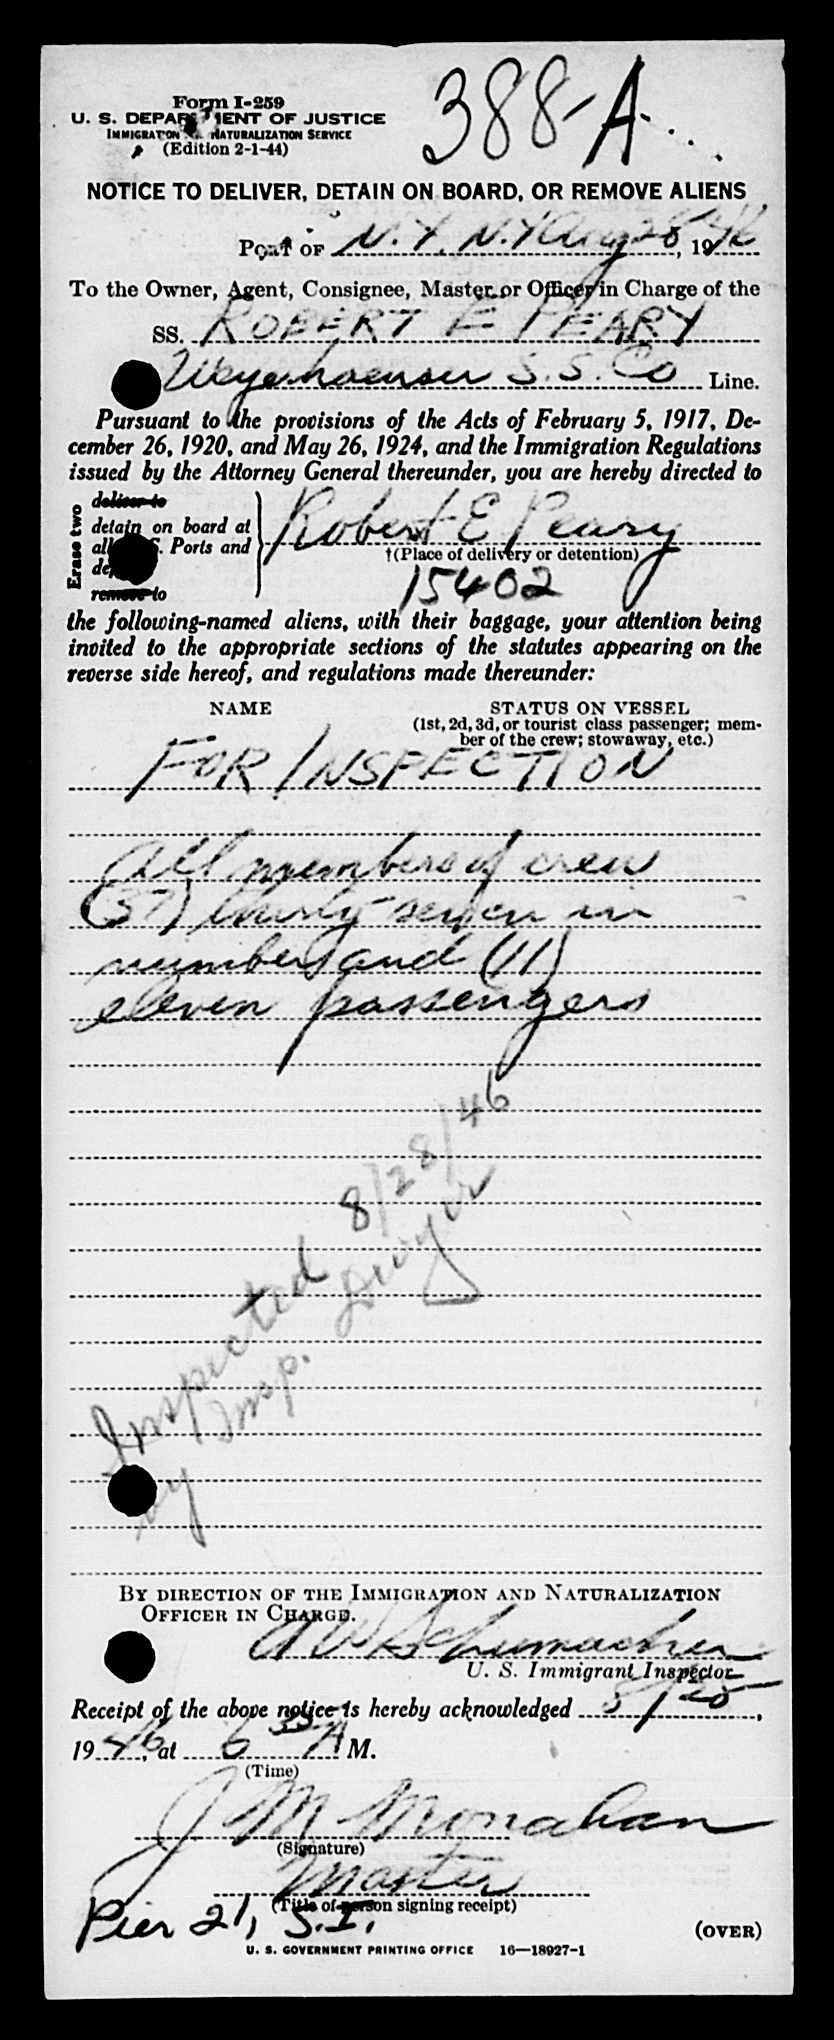 388-A
Form I-259
U. S. DEPARTMENT OF JUSTICE
IMMIGRATION NATURALIZATION SERVICE
(Edition 2-1-44)
NOTICE TO DELIVER, DETAIN ON BOARD, OR REMOVE ALIENS
PORT OF N.Y. N.Y. Aug 28, 1946
To the Owner, Agent, Consignee, Master or Officer in Charge of the
SS. ROBERT E PEARY
Weyerhaeuser S.S. Co Line.
Pursuant to the provisions of the Acts of February 5, 1917, De-
cember 26, 1920, and May 26, 1924, and the Immigration Regulations
issued by the Attorney General thereunder, you are hereby directed to
Erase two
deliver to
detain on board at Robert E Peary
all S. Ports and †(Place of delivery or detention)
remove to 15402
the following-named aliens, with their baggage, your attention being
invited to the appropriate sections of the statutes appearing on the
reverse side hereof, and regulations made thereunder:
NAME STATUS ON VESSEL
(1st, 2d, 3d, or tourist class passenger; mem-
ber of the crew; stowaway, etc.)
FOR INSPECTION
All members of crew
(37) thirty seven in
number and (11)
eleven passengers
Inspected 8/28/46
by Insp. Dwyer
BY DIRECTION OF THE IMMIGRATION AND NATURALIZATION
OFFICER IN CHARGE.
A W Schumacher
U. S. Immigrant Inspector
Receipt of the above notice is hereby acknowledged 8/28,
1946, at 6 35 A M.
(Time)
J M Monahan
(Signature)
Master
(Title of person signing receipt)
Pier 21, S.I.
(OVER)
U. S. GOVERNMENT PRINTING OFFICE 16—18927-1